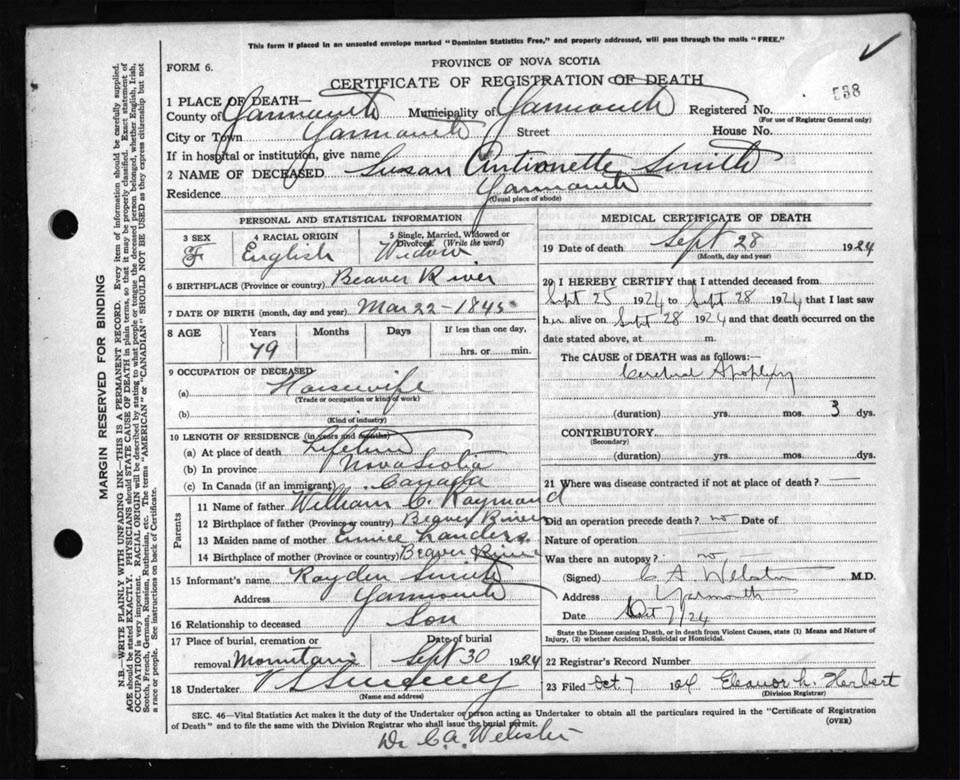 This form if placed in an unsealed envelope marked "Dominion Statistics Free," and properly addressed, will pass through the mails "FREE."
FORM 6.
PROVINCE OF NOVA SCOTIA
CERTIFICATE OF REGISTRATION OF DEATH
538
1 PLACE OF DEATH—
County of Yarmouth Municipality of Yarmouth Registered No.
(For use of Registrar General only)
City or Town Yarmouth Street House No.
If in hospital or institution, give name
2 NAME OF DECEASED Susan Antionette Smith
Residence Yarmouth
(Usual place of abode)
PERSONAL AND STATISTICAL INFORMATION
3 SEX 4 RACIAL ORIGIN 5 Single, Married, Widowed or Divorced (Write the word)
F English Widow
6 BIRTHPLACE (Province or country) Beaver River
7 DATE OF BIRTH (month, day and year) Mar 22 - 1845
8 AGE Years Months Days If less than one day,
79 hrs. or min.
9 OCCUPATION OF DECEASED
(a) Housewife
(Trade or occupation or kind of work)
(b)
(Kind of industry)
10 LENGTH OF RESIDENCE (in years and months)
(a) At place of death Lifetime
(b) In province Nova Scotia
(c) In Canada (if an immigrant) Canada
Parents
11 Name of father William C. Raymond
12 Birthplace of father (Province or country) Beaver River
13 Maiden name of mother Eunice Landers
14 Birthplace of mother (Province or country) Beaver River
15 Informant's name Rayden Smith
Address Yarmouth
16 Relationship to deceased Son
17 Place of burial, cremation or removal Mountain Date of burial Sept 30 1924
18 Undertaker V S Sweeny
(Name and address)
MEDICAL CERTIFICATE OF DEATH
19 Date of death Sept 28 1924
(Month, day and year)
20 I HEREBY CERTIFY that I attended deceased from
Sept 25 1924 to Sept 28 1924 that I last saw
her alive on Sept 28 1924 and that death occurred on the
date stated above, at m.
The CAUSE of DEATH was as follows:—
Cerebral Apoplexy
(duration) yrs. mos. 3 dys.
CONTRIBUTORY
(Secondary)
(duration) yrs. mos. dys.
21 Where was disease contracted if not at place of death? —
Did an operation precede death? no Date of
Nature of operation
Was there an autopsy? no
(Signed) C A Webster M.D.
Address Yarmouth
Date Oct 7/24
State the Disease causing Death, or in death from Violent Causes, state (1) Means and Nature of
Injury, (2) whether Accidental, Suicidal or Homicidal.
22 Registrar's Record Number
23 Filed Oct 7 1924 Eleanor h. Herbert
(Division Registrar)
SEC. 46—Vital Statistics Act makes it the duty of the Undertaker or person acting as Undertaker to obtain all the particulars required in the "Certificate of Registration
of Death" and to file the same with the Division Registrar who shall issue the burial permit. (OVER)
Dr C.A. Webster
MARGIN RESERVED FOR BINDING
N.B.—WRITE PLAINLY WITH UNFADING INK—THIS IS A PERMANENT RECORD. Every item of information should be carefully supplied.
AGE should be stated EXACTLY. PHYSICIANS should STATE CAUSE OF DEATH in plain terms, so that it may be properly classified. Exact statement of
OCCUPATION is very important. RACIAL ORIGIN will be described by stating to what people or tongue the deceased person belonged, whether English, Irish,
Scotch, French, German, Russian, Ruthenian, etc. The terms "AMERICAN" or "CANADIAN" SHOULD NOT BE USED as they express citizenship but not
a race or people. See instructions on back of Certificate.